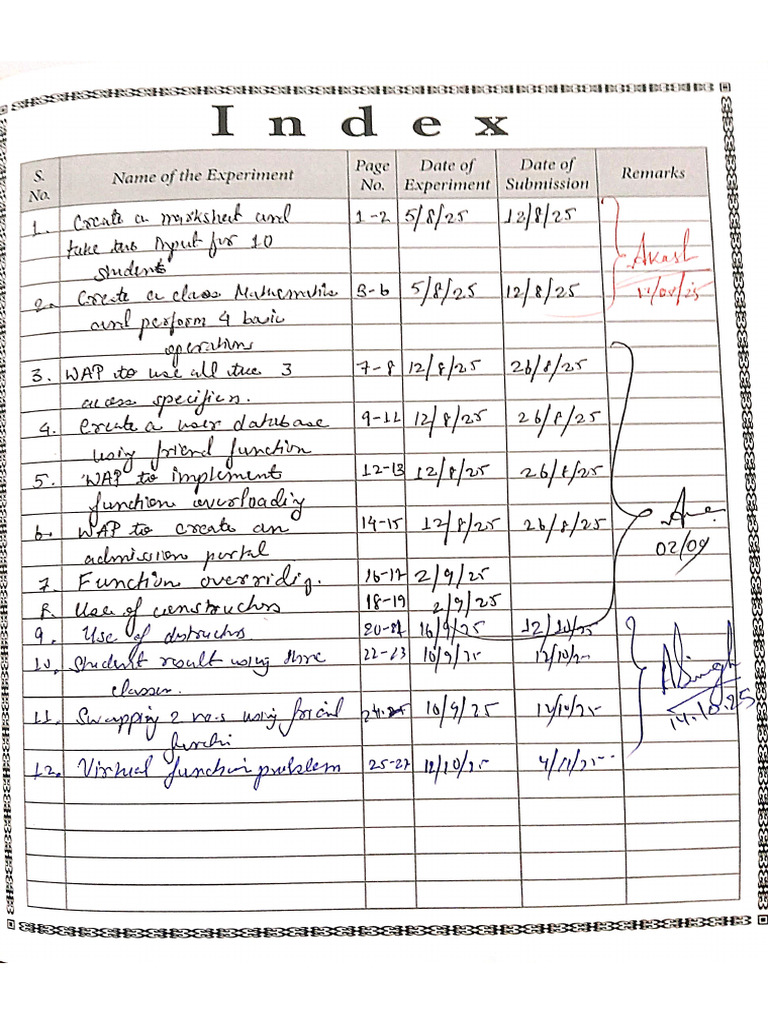 Index
S. No. Name of the Experiment Page No. Date of Experiment Date of Submission Remarks
1. Create a marksheet and 1-2 5/8/25 12/8/25
take the input for 10
students Akash
2. Create a class Mathematics 3-6 5/8/25 12/8/25
and perform 4 basic
operations
3. WAP to use all the 3 7-8 12/8/25 26/8/25
access specifiers.
4. Create a user database 9-11 12/8/25 26/8/25
using friend function
5. WAP to implement 12-13 12/8/25 26/8/25
function overloading
6. WAP to create an 14-15 12/8/25 26/8/25
admission portal 02/09
7. Function overriding. 16-17 2/9/25
8. Use of constructors 18-19 2/9/25
9. Use of distructors. 20-21 16/9/25 12/10/25
10. Student result using three 22-23 10/9/25 12/10/25
classes. ASingh
11. Swapping 2 no.s using friend 10/9/25 12/10/25 14.10.25
functi
12. Virtual function problem 25-27 12/10/25 4/11/25